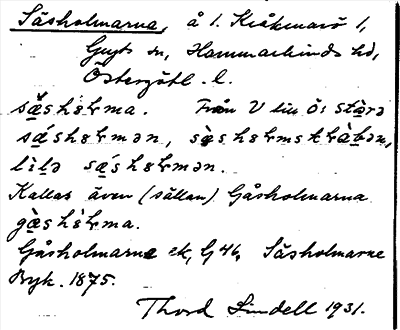 Såsholmarna, å l. Kråkmarö 1,
Gryts sn, Hammarkinds hd,
Östergötl. l.
såshɞɫma. Från V till Ö: stòrə
sáshɞɫmən, sàshɞɫmskràbən,
lìlə sáshɞɫmən.
Kallas även (sällan) Gåsholmarna
gàshɞɫma.
Gåsholmarne ek, G 46, Såsholmarne
Ryk. 1875.
Thord Lindell 1931.